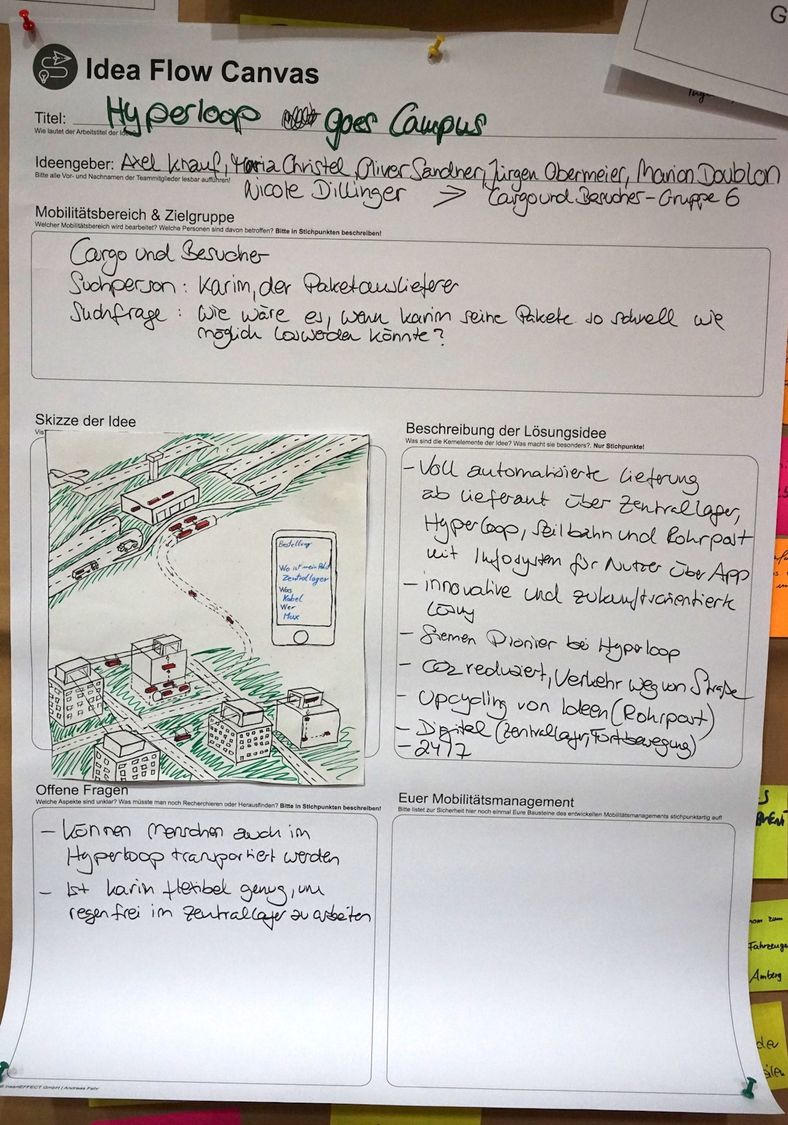 Idea Flow Canvas
Titel: Hyperloop goes Campus
Wie lautet der Arbeitstitel der
Ideengeber: Axel Krauf, Maria Christel, Oliver Sandner, Jürgen Obermeier, Marion Doublon
Bitte alle Vor- und Nachnamen der Teammitglieder lesbar aufführen!
Nicole Dillinger > Cargo und Besucher - Gruppe 6
Mobilitätsbereich & Zielgruppe
Welcher Mobilitätsbereich wird bearbeitet? Welche Personen sind davon betroffen? Bitte in Stichpunkten beschreiben!
Cargo und Besucher
Suchperson : Karim, der Paketauslieferer
Suchfrage : Wie wäre es, wenn Karim seine Pakete so schnell wie
möglich loswerden könnte?
Skizze der Idee
Bestellung
Wo ist mein Paket
Zentrallager
Was
Kabel
Wer
Max
Beschreibung der Lösungsidee
Was sind die Kernelemente der Idee? Was macht sie besonders? Nur Stichpunkte!
- Voll automatisierte Lieferung
ab Lieferant über Zentrallager,
Hyperloop, Seilbahn und Rohrpost
mit Infosystem für Nutzer über App
- innovative und zukunftsorientierte
Lösung
- Siemens Pionier bei Hyperloop
- CO2 reduziert, Verkehr weg von Straße
- Upcycling von Ideen (Rohrpost)
- Digital (Zentrallager, Fortbewegung)
- 24/7
Offene Fragen
Welche Aspekte sind unklar? Was müsste man noch Recherchieren oder Herausfinden? Bitte in Stichpunkten beschreiben!
- Können Menschen auch im
Hyperloop transportiert werden
- Ist Karim flexibel genug, um
regenfrei im Zentrallager zu arbeiten
Euer Mobilitätsmanagement
Bitte listet zur Sicherheit hier noch einmal Eure Bausteine des entwickelten Mobilitätsmanagements stichpunktartig auf!
GmbH | Andreas Fehr
G
zum
Fahrzeuge
Amberg